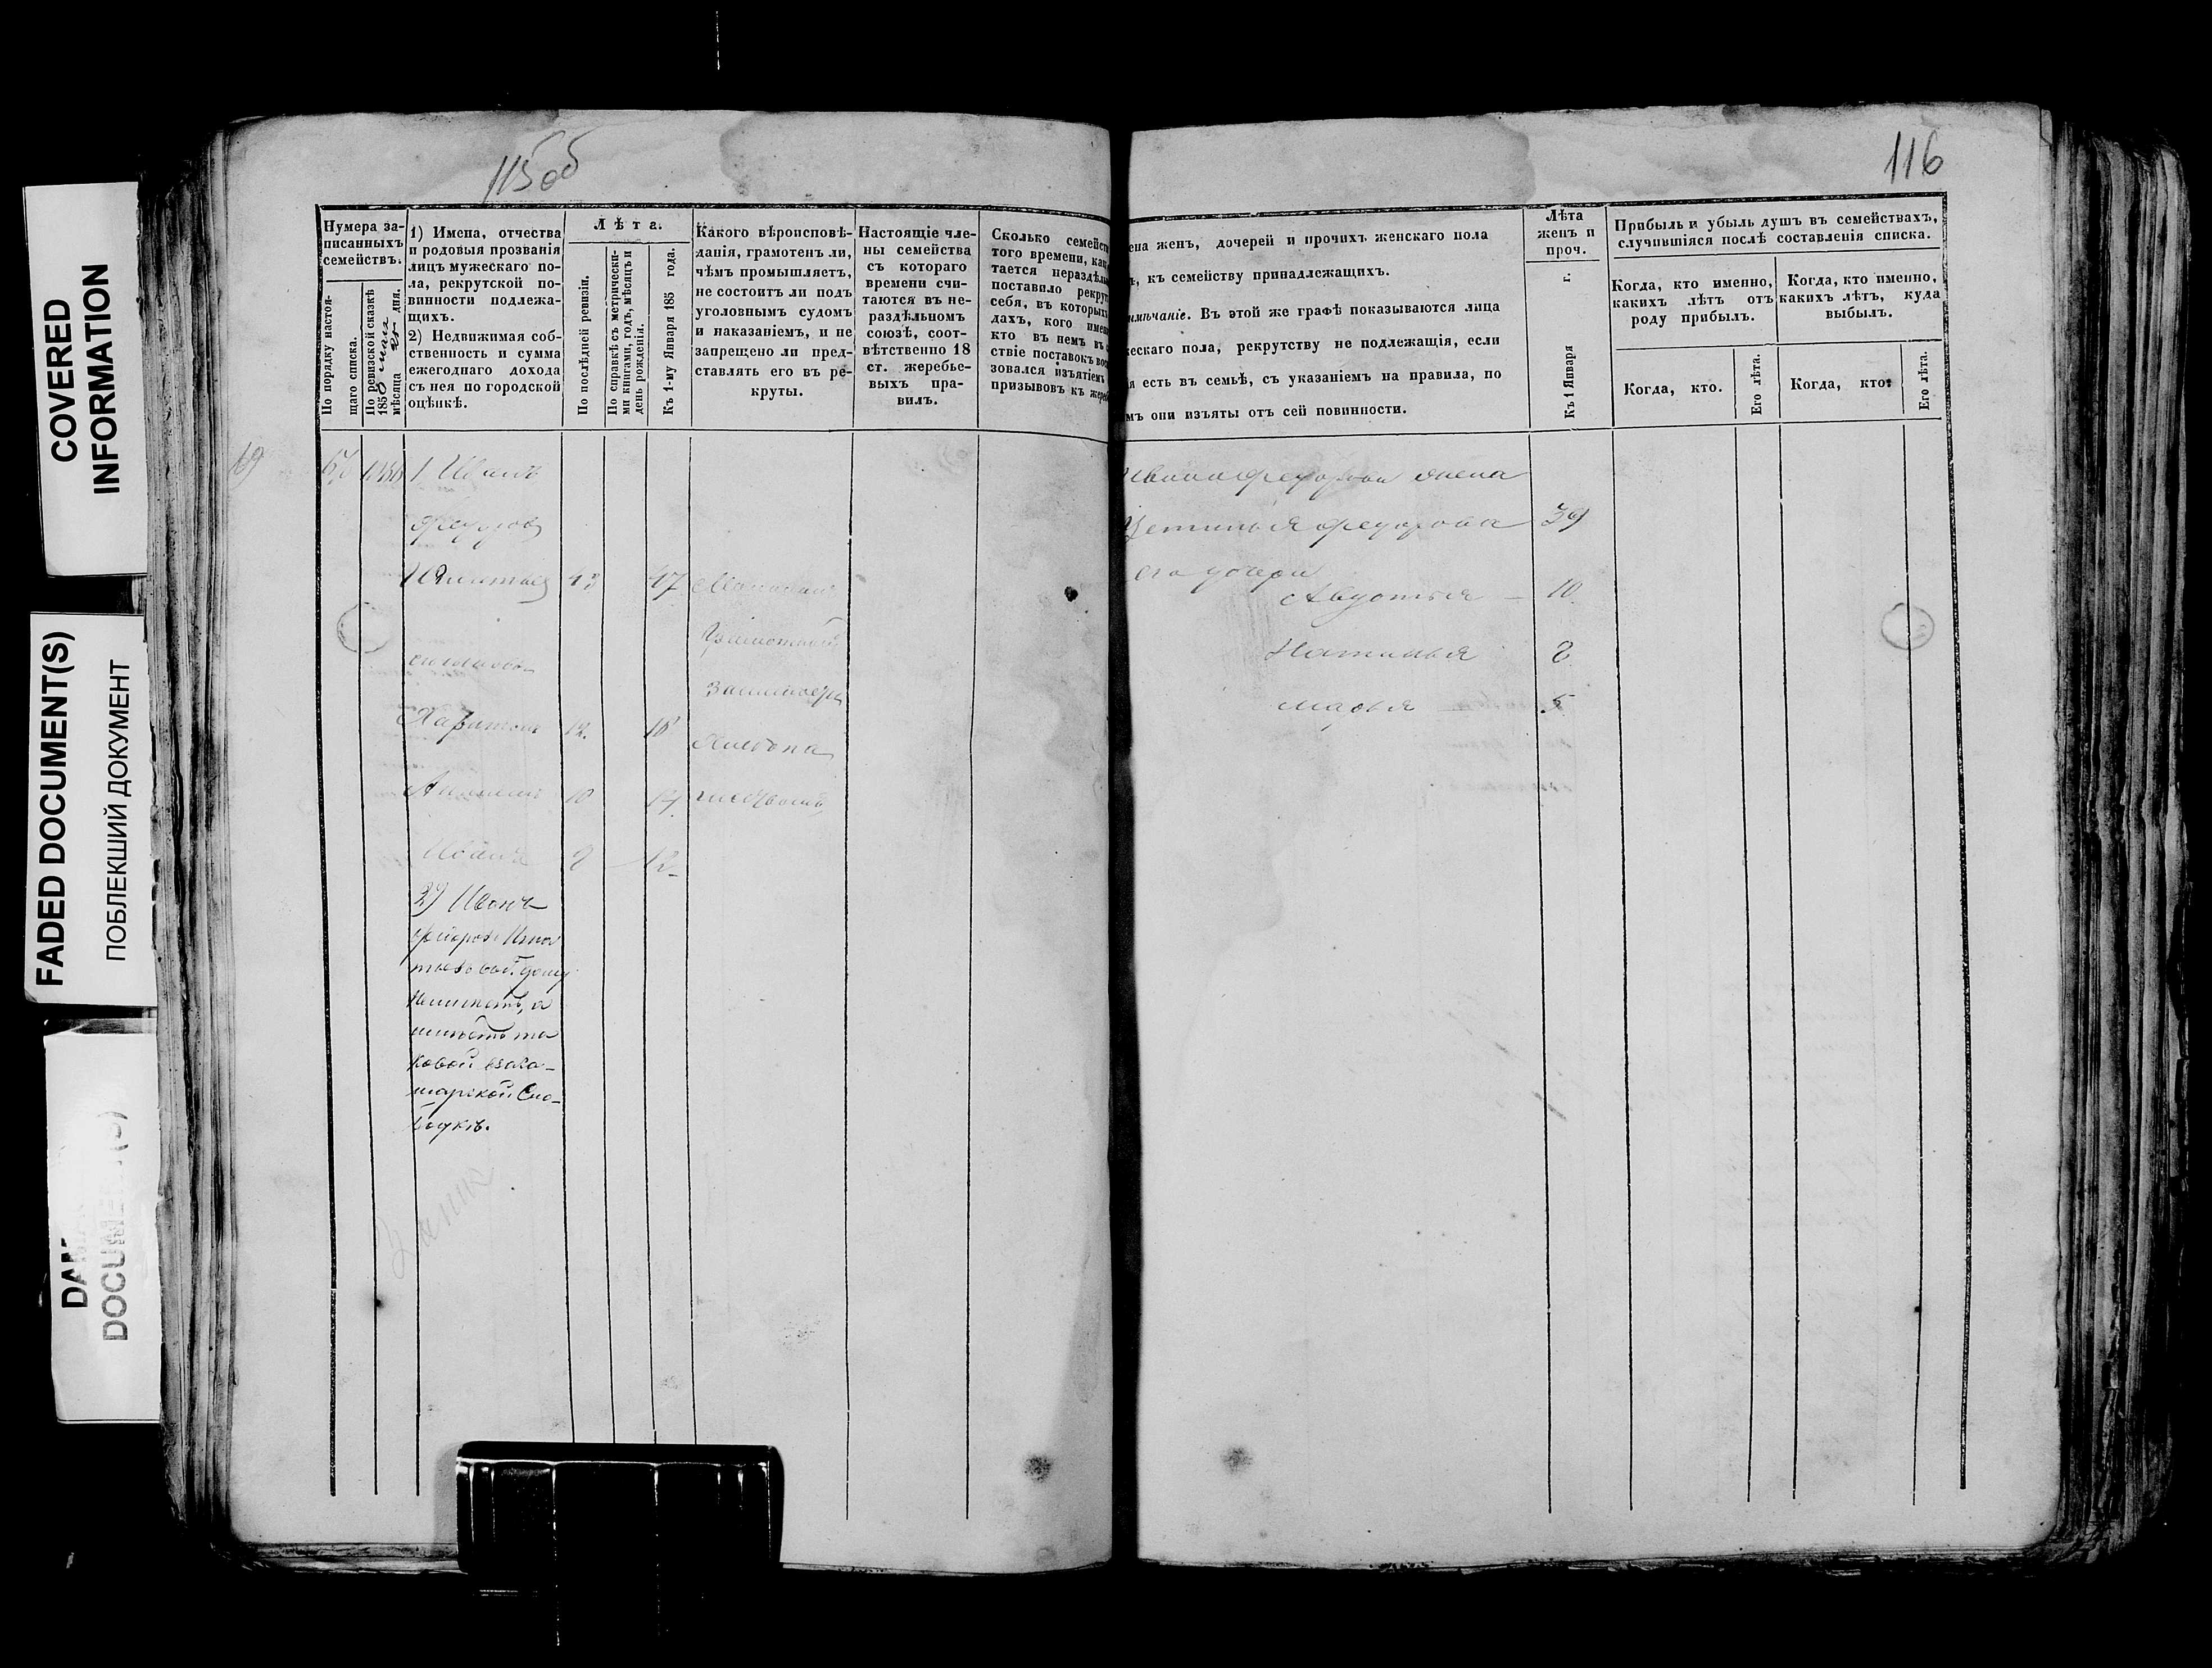 COVERED
INFORMATION
FADED DOCUMENT(S)
ПОБЛЕКШИЙ ДОКУМЕНТ
115 об
Нумера за-
писанныхъ
семействъ.
По порядку настоя-
щаго списка.
По ревизской сказкѣ
1858 мая
мѣсяца 25 дня.
1) Имена, отчества
и родовыя прозванія
лицъ мужескаго по-
ла, рекрутской по-
винности подлежа-
щихъ.
2) Недвижимая соб-
ственность и сумма
ежегоднаго дохода
съ нея по городской
оцѣнкѣ.
Лѣта.
По послѣдней ревизіи.
По справкѣ съ метрически-
ми книгами, годъ, мѣсяцъ и
день рожденія.
Къ 1-му Января 185 года.
Какого вѣроисповѣ-
данія, грамотенъ ли,
чѣмъ промышляетъ,
не состоитъ ли подъ
уголовнымъ судомъ
и наказаніемъ, и не
запрещено ли пред-
ставлять его въ ре-
круты.
Настоящіе чле-
ны семейства
съ котораго
времени счи-
таются въ не-
раздѣльномъ
союзѣ, соот-
вѣтственно 18
ст. жеребье-
выхъ пра-
вилъ.
Сколько семейст
того времени, как
тается нераздѣль
поставило рекру
себя, въ которых
дахъ, кого имен
кто въ немъ въ
ствіе поставокъ вос
зовался изъятіемъ
призывовъ къ жереб
1 Иванъ
Федоровъ
Игнатьев 43 47
Харитонъ 12. 16
10 14
Иванъ 8 12
Грамотный
2) Иванъ
Федоровъ Игна
тьевъ дому
неимѣетъ, а
имѣетъ та
ковой
Сло-
бодкѣ.
116
ена женъ, дочерей и прочихъ женскаго пола
ъ, къ семейству принадлежащихъ.
имѣчаніе. Въ этой же графѣ показываются лица
жескаго пола, рекрутству не подлежащія, если
я есть въ семьѣ, съ указаніемъ на правила, по
мъ они изъяты отъ сей повинности.
Лѣта
женъ и
проч.
Къ 1 Января г.
Прибыль и убыль душъ въ семействахъ,
случившіяся послѣ составленія списка.
Когда, кто именно,
какихъ лѣтъ отъ
роду прибылъ.
Когда, кто именно,
какихъ лѣтъ, куда
выбылъ.
Когда, кто.
Его лѣта.
Когда, кто.
Его лѣта.
Ивана Федорова жена
Устинья Федорова 39
его дочери
Авдотья — 10.
Наталья 8
Марья — 5